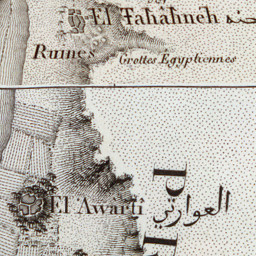 El Tahâhneh
Ruines
Grottes Égyptiennes
El Awârti العوارتي